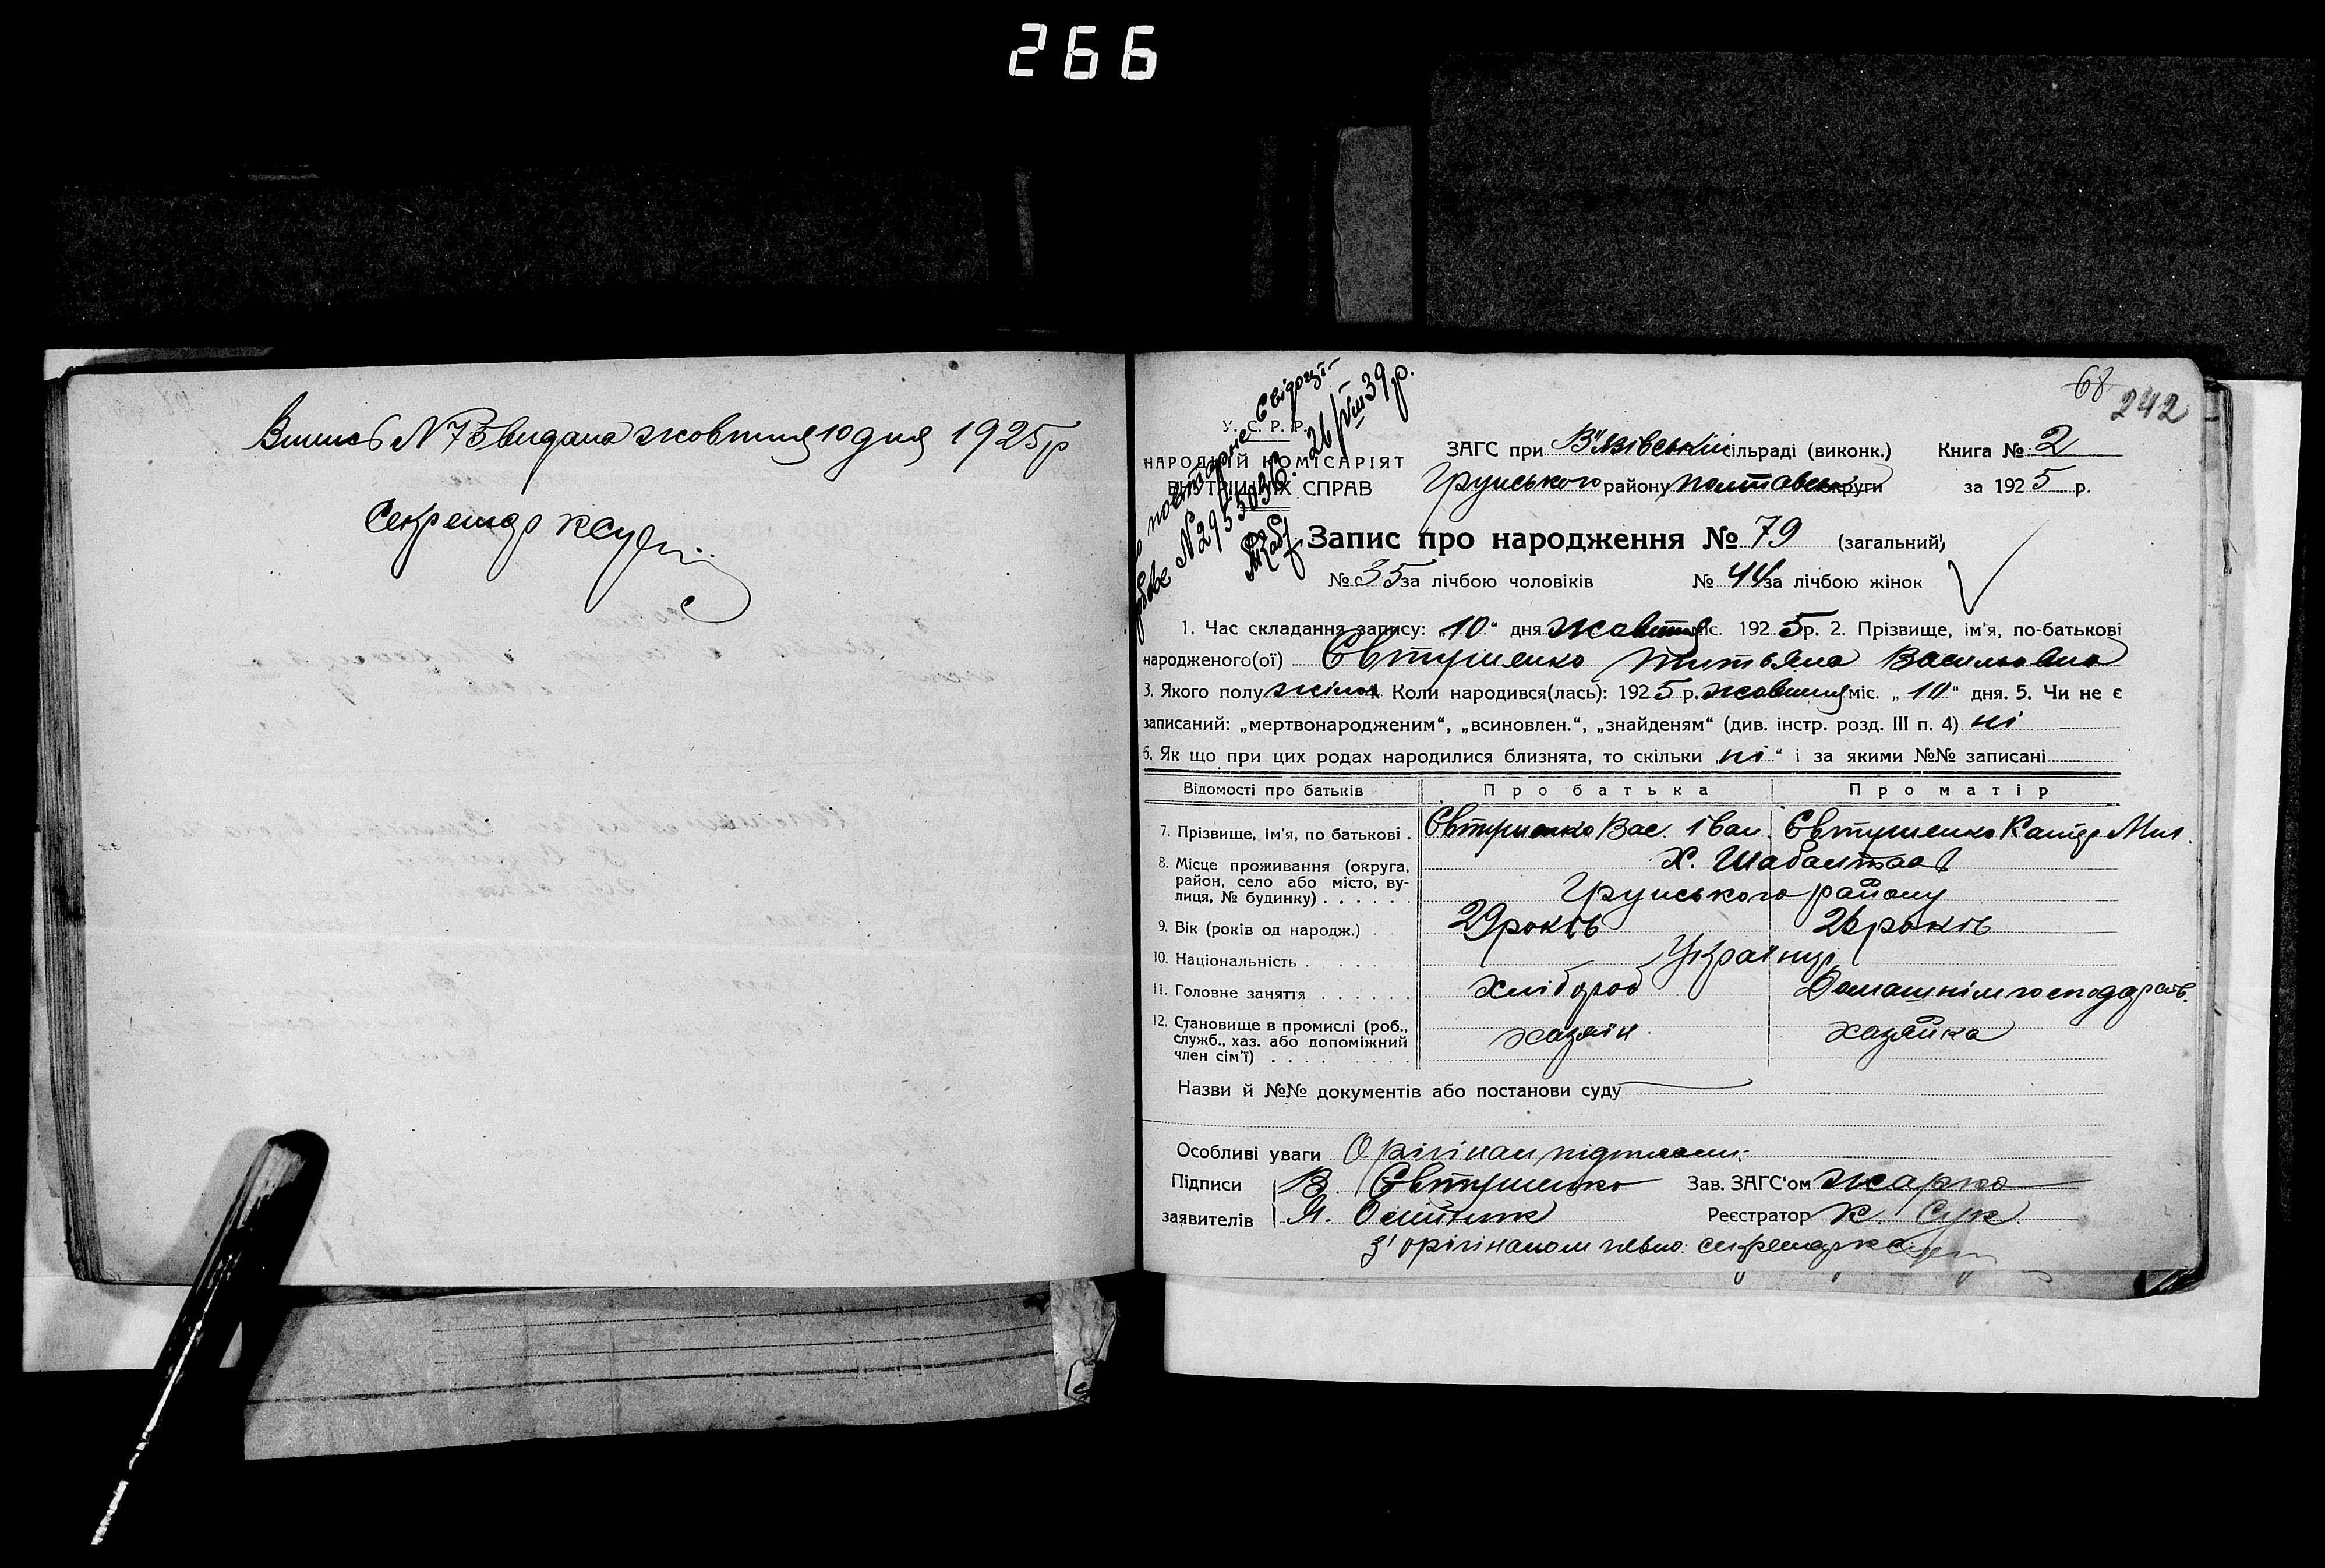 266
Випись N 75 видана жовтня 10 дня 1925 р
Секретар КСук
68
242
повторне свідоцт-
N 295503 26/VIII 39 р.
У. С. Р. Р.
НАРОДНІЙ КОМІСАРІЯТ
ВНУТРІШНІХ СПРАВ
ЗАГС при В'язівській сільраді (виконк.) Книга № 2
Грунського району Полтавськ округи за 1925 р.
Запис про народження № 79 (загальний)
№ 35 за лічбою чоловіків № 44 за лічбою жінок
1. Час складання запису: „10" дня жовтня міс. 1925 р. 2. Прізвище, ім'я, по-батькові
народженого(ої) Євтушенко Титьяна Васильовна
3. Якого полу жіноч Коли народився(лась): 1925 р. жовтня міс. „10" дня. 5. Чи не є
записаний: „мертвонародженим", „всиновлен.", „знайденям" (див. інстр. розд. III п. 4) ні
6. Як що при цих родах народилися близнята, то скільки „ні" і за якими №№ записані
Відомості про батьків Про батька Про матір
7. Прізвище, ім'я, по батькові . Євтушенко Вас. Іван. Євтушенко Катер Мих.
8. Місце проживання (округа, район, село або місто, вулиця, № будинку) . . . . . . Х. Шабалтаєв
Грунського району
9. Вік (років од народж.) 29 років 26 років
10. Національність . . . . . Українці
11. Головне заняття . . . . . . хлібороб Домашнім господарств.
12. Становище в промислі (роб., служб., хаз. або допоміжний член сім'ї) . . . . . . . . . хазяін хазяйка
Назви й №№ документів або постанови суду
Особливі уваги Орігінал підписали:
Підписи В. Євтушенко Зав. ЗАГС'ом Жарко
заявителів Я. Олійник Реєстратор К. Сук
З' орігіналом певно: секретарь КСук